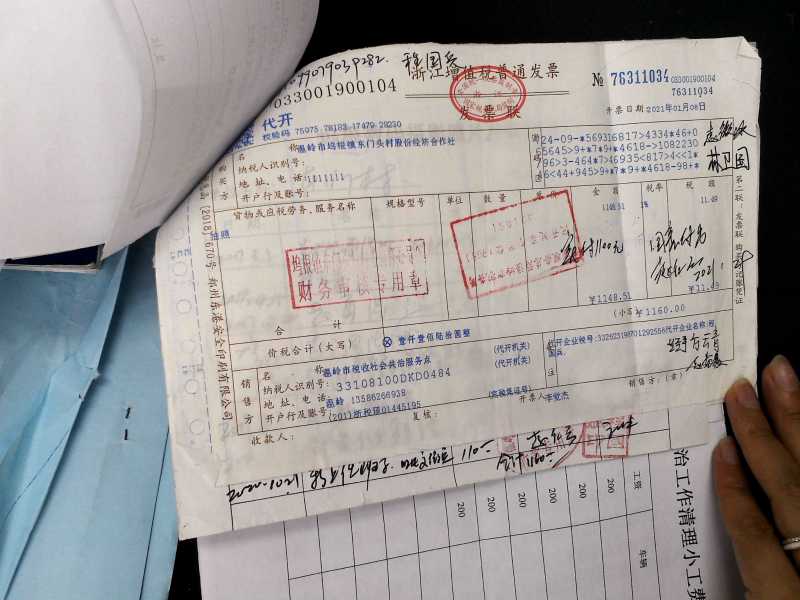 程国兵
浙江增值税普通发票
033001900104
№ 76311034
033001900104
76311034
发票联
开票日期:2021年01月08日
代开
校验码 75075 78183 17479 29230
购买方
名称:温岭市坞根镇东门头村股份经济合作社
纳税人识别号:
地址、电话:1111111
开户行及账号:
24-09-*569316817>4334*46+0
65645>9+*7+9*4618->1082230
*96>3-464*7>46935<817>4<<1*
46<44+945>9+*7*9*4618-98+*
林卫国
货物或应税劳务、服务名称
规格型号
单位
数量
金额
税率
税额
1148.51
1%
11.49
实付1100元
财务审核专用章
2021
合计
¥1148.51
¥11.49
价税合计(大写)
壹仟壹佰陆拾圆整
(小写)
¥1160.00
销售方
名称:温岭市税收社会共治服务点
(代开机关)
纳税人识别号:33108100DKD0484
(代开机关)
地址、电话:温岭 13586266938
开户行及账号:(201)浙税银01445195
(完税凭证号)
代开企业税号:332623198701292556代开企业名称:程国兵
收款人:
复核:
开票人:
销售方:(章)
第二联:发票联 购买方记账凭证
(2018)670号 郑州东港安全印刷有限公司
2020.10.21
110.-
合计1160.-
200
200
200
200
200
200
工资
车辆
治工作清理小工费